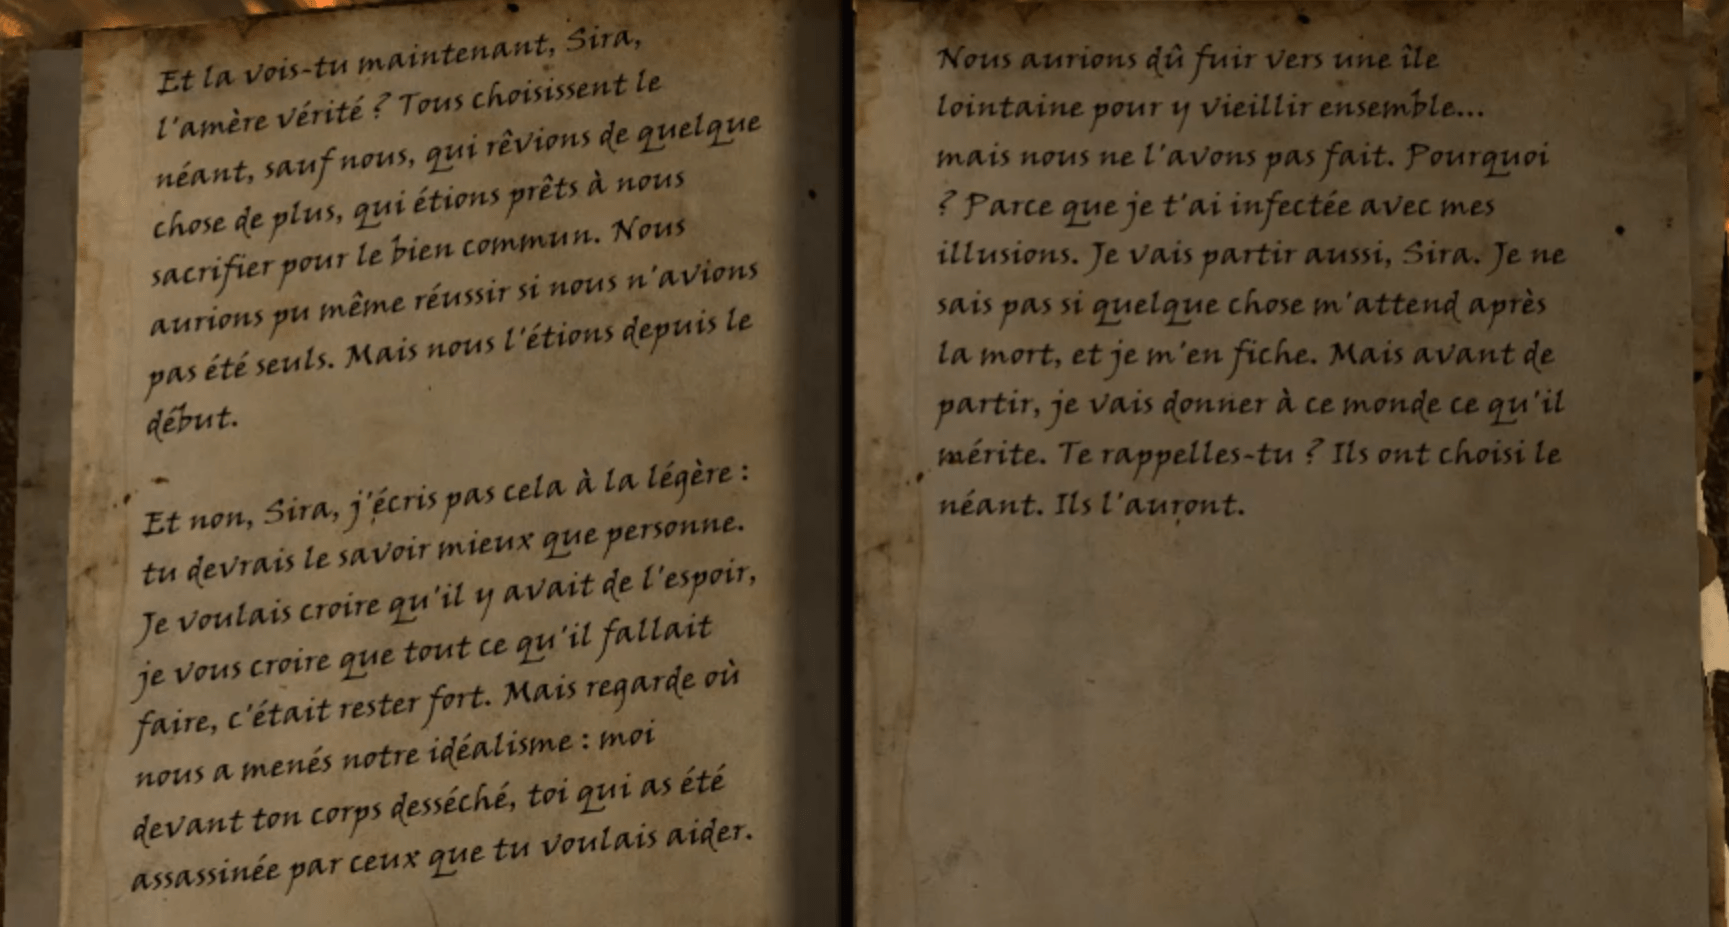 Et la vois-tu maintenant, Sira,
l'amère vérité ? Tous choisissent le
néant, sauf nous, qui rêvions de quelque
chose de plus, qui étions prêts à nous
sacrifier pour le bien commun. Nous
aurions pu même réussir si nous n'avions
pas été seuls. Mais nous l'étions depuis le
début.
Et non, Sira, j'écris pas cela à la légère :
tu devrais le savoir mieux que personne.
Je voulais croire qu'il y avait de l'espoir,
je vous croire que tout ce qu'il fallait
faire, c'était rester fort. Mais regarde où
nous a menés notre idéalisme : moi
devant ton corps desséché, toi qui as été
assassinée par ceux que tu voulais aider.
Nous aurions dû fuir vers une île
lointaine pour y vieillir ensemble...
mais nous ne l'avons pas fait. Pourquoi
? Parce que je t'ai infectée avec mes
illusions. Je vais partir aussi, Sira. Je ne
sais pas si quelque chose m'attend après
la mort, et je m'en fiche. Mais avant de
partir, je vais donner à ce monde ce qu'il
mérite. Te rappelles-tu ? Ils ont choisi le
néant. Ils l'auront.